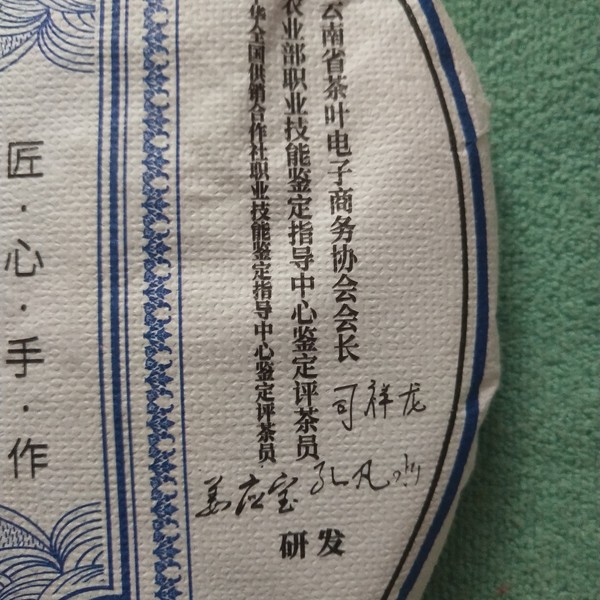 云南省茶叶电子商务协会会长
司祥龙
农业部职业技能鉴定指导中心鉴定评茶员
孔凡
华全国供销合作社职业技能鉴定指导中心鉴定评茶员
姜应宝
研发
匠·心·手·作